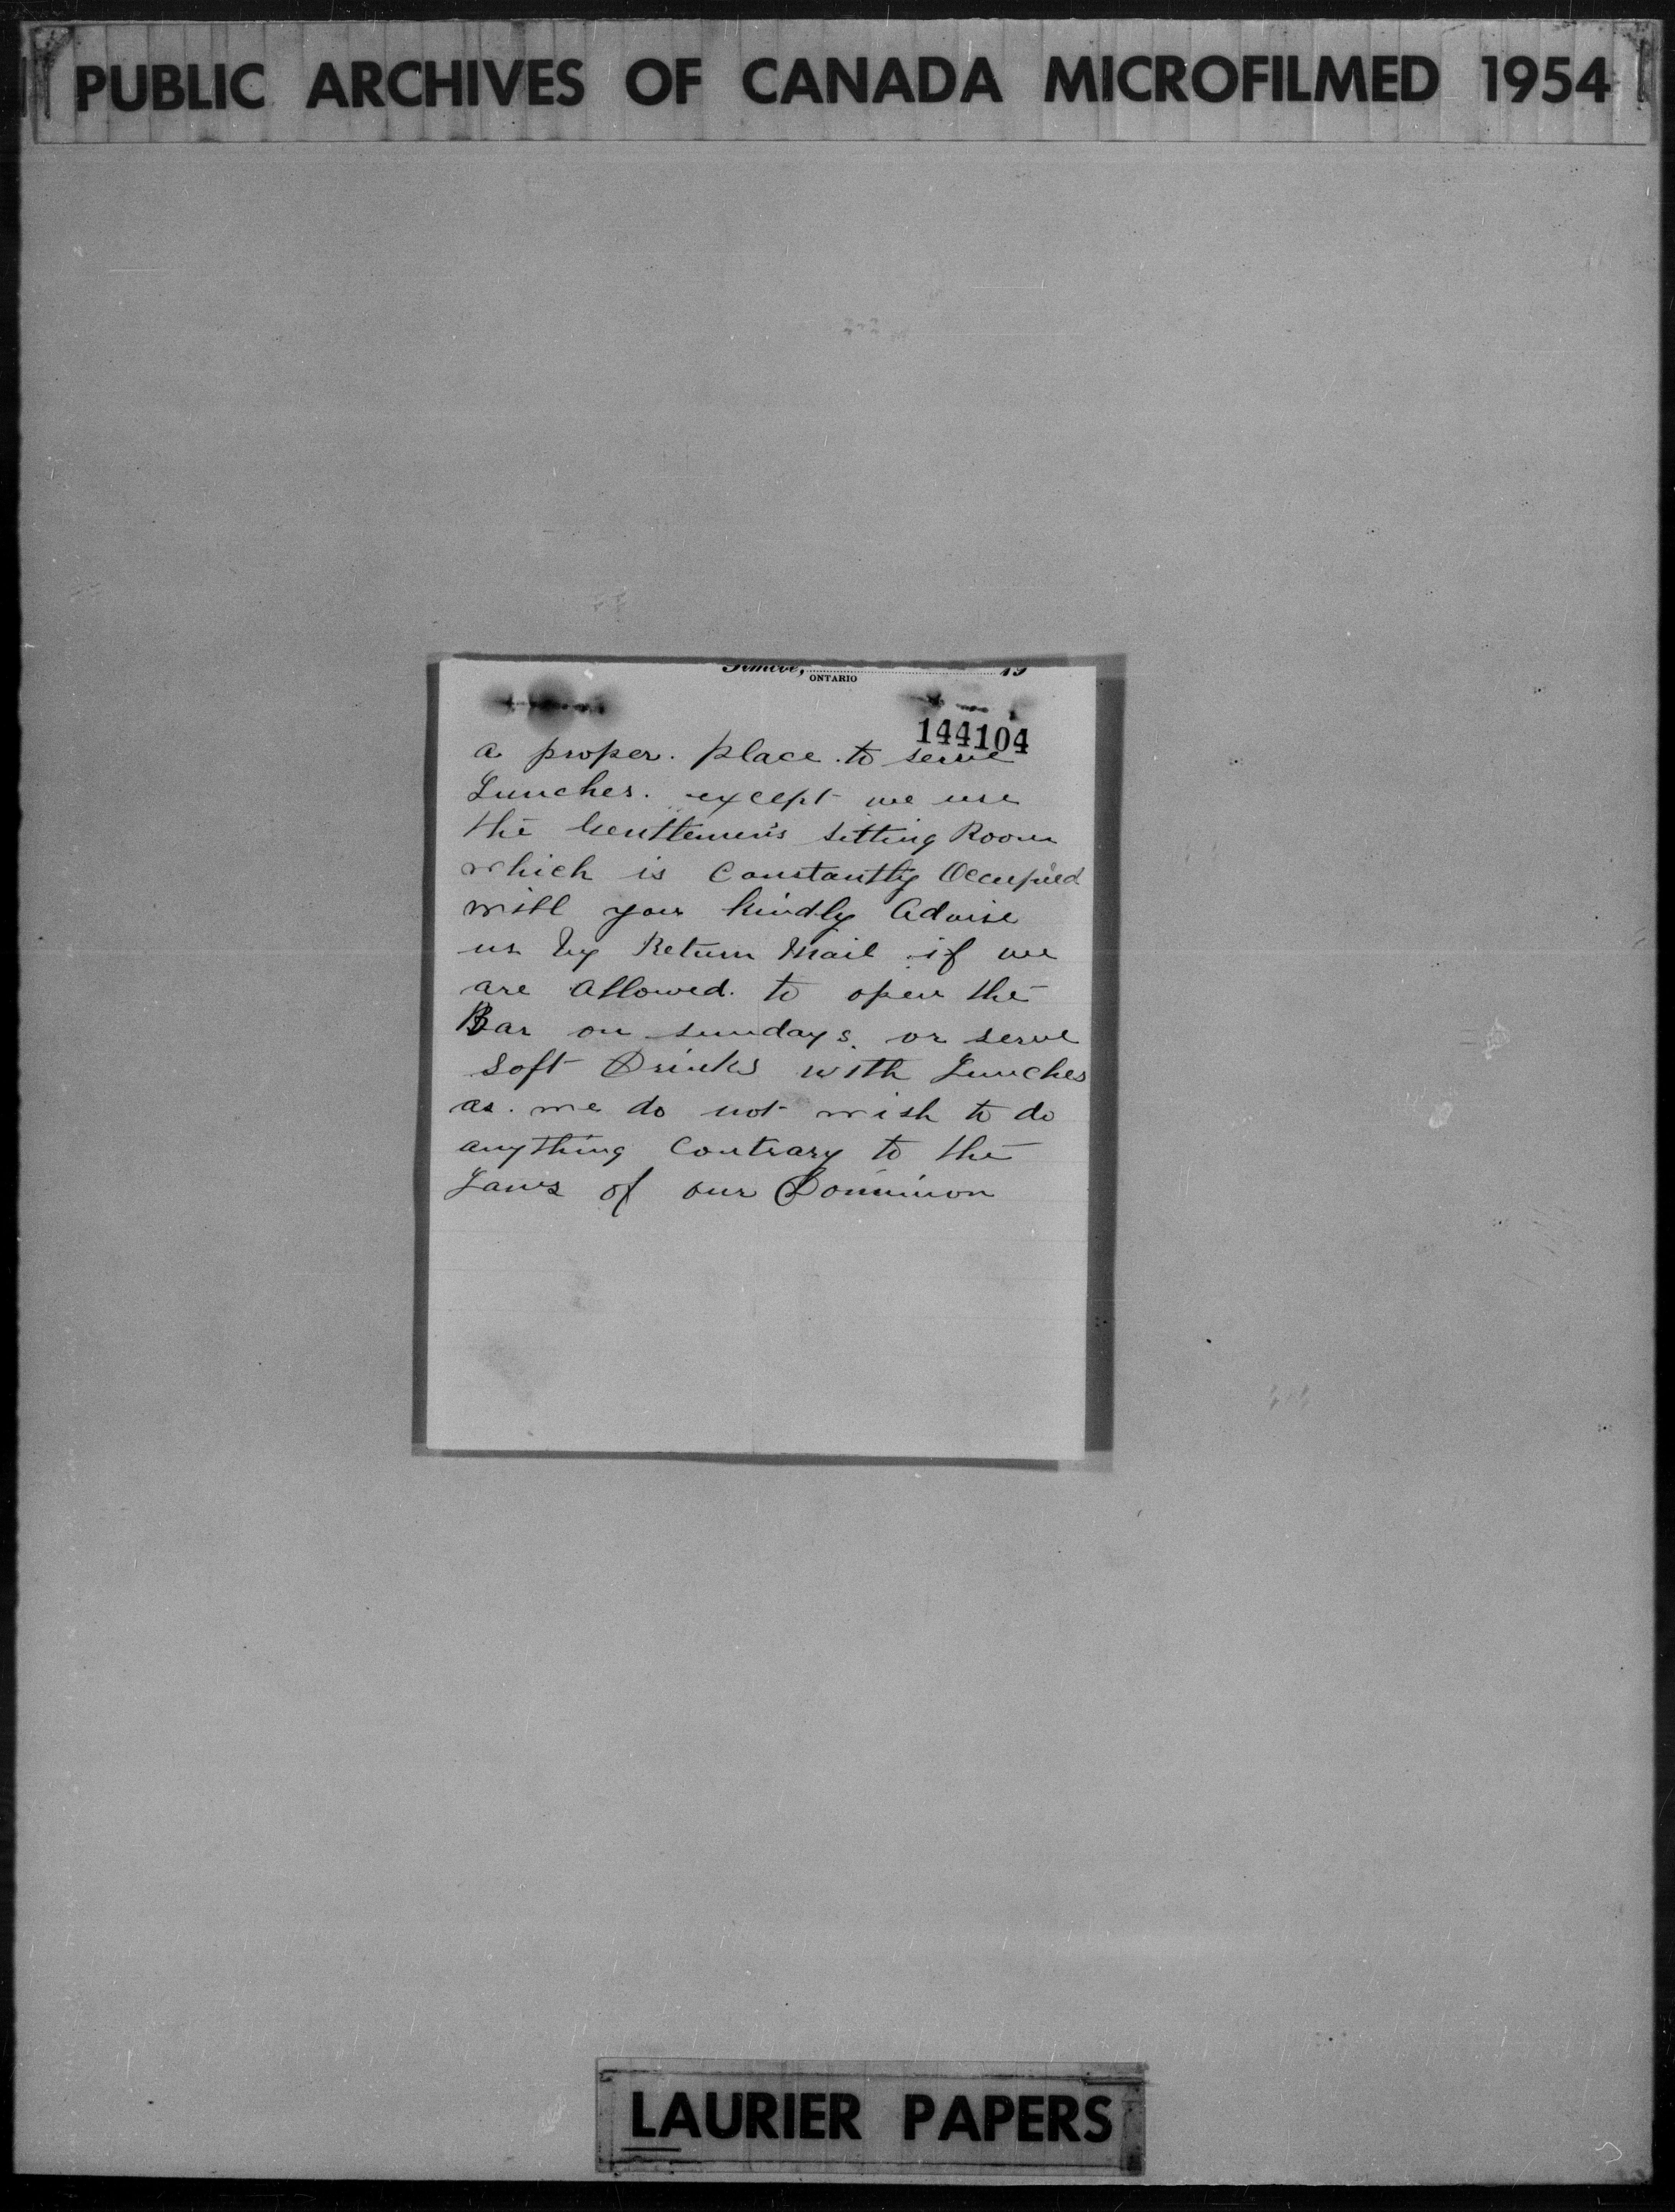 PUBLIC ARCHIVES OF CANADA MICROFILMED 1954
Simcoe, ONTARIO 19
144104
a proper. place. to serve
Lunches. except we use
the Gentlemen's Sitting Room
which is Constantly Occupied
will you kindly Advise
us by Return Mail if we
are Allowed. to open the
Bar on sundays. or serve
Soft Drinks with Lunches
as. we do not wish to do
anything Contrary to the
Laws of our Dominion
LAURIER PAPERS